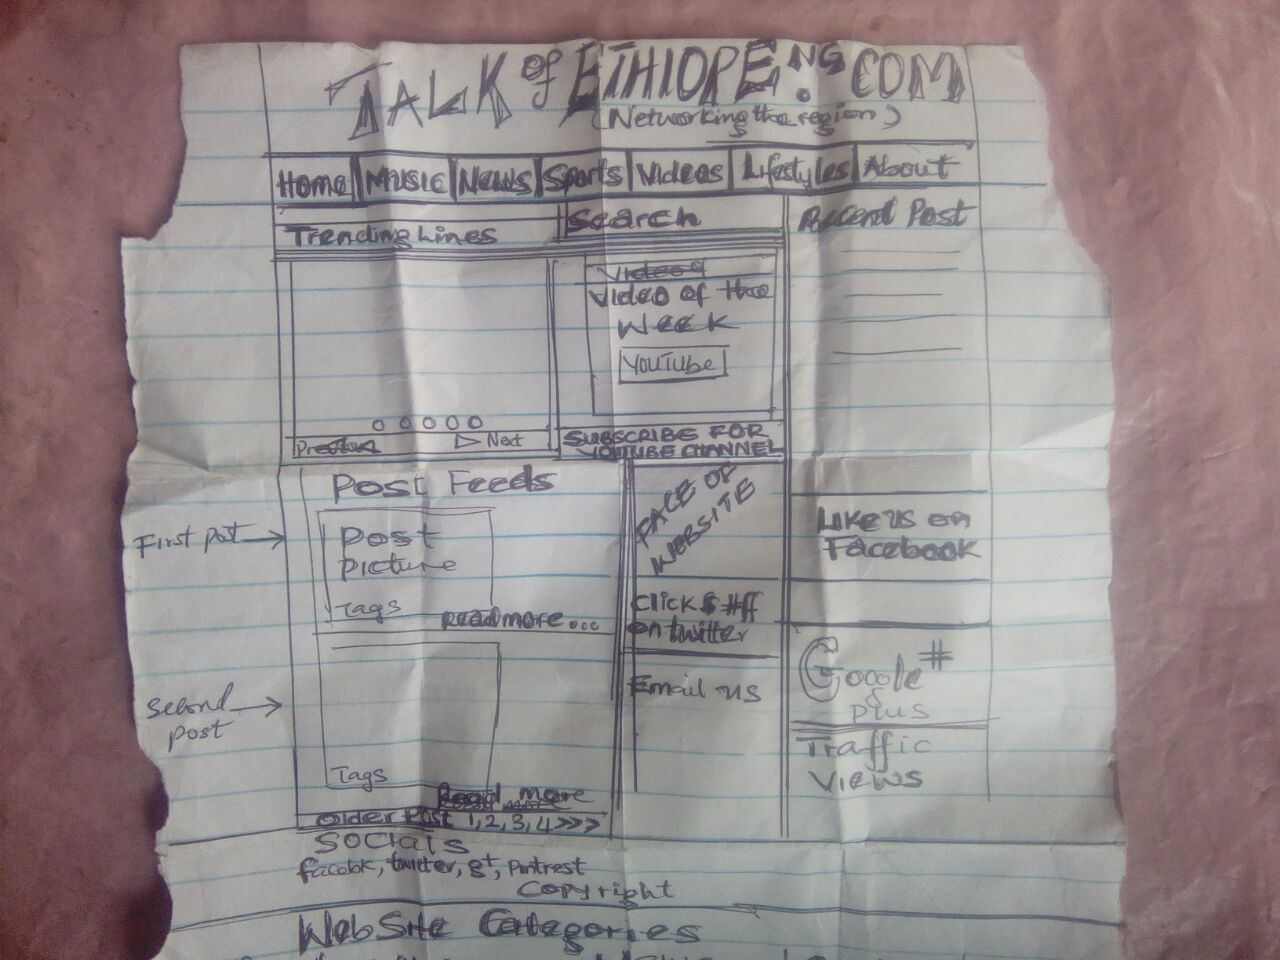 TALK of ETHIOPE.NG.COM
(Networking the region)
Home Music News Sports Videos Lifestyles About
Trending Lines
Search
Recent Post
Video of the
Week
YouTube
Next
SUBSCRIBE FOR
YOUTUBE CHANNEL
Post Feeds
First post
Post
Picture
Tags
Read more...
Second
post
Tags
Read more
Older Post 1,2,3,4 >>>
FACE OF
WEBSITE
Click $ #ff
on twitter
Email us
Like us on
Facebook
Google #
plus
Traffic
Views
Socials
facebk, twitter, g+, Pintrest
Copyright
WebSite Categories